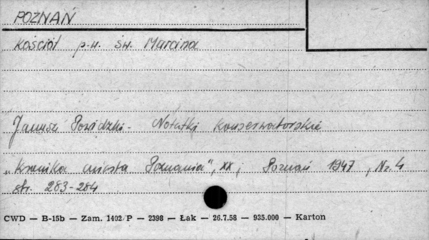 POZNAŃ
Kościół p.w. św. Marcina
Janusz Powidzki - Notatki konserwatorskie
„Kronika miasta Poznania", XX, Poznań 1947, No. 4
str. 283-284
CWD — B-15b — Zam. 1402/P — 2398 — Łak — 26.7.58 — 935.000 — Karton